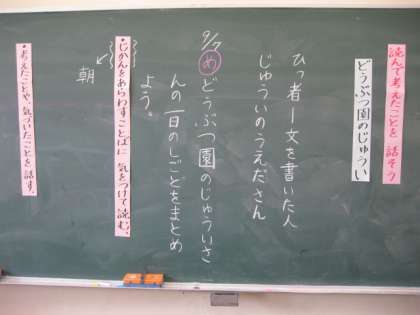 読んで考えたことを 話そう
どうぶつ園のじゅうい
ひっ者ー文を書いた人
じゅういのうえださん
9/7
め どうぶつ園のじゅういさ
んの一日のしごとをまとめ
よう。
•じかんをあらわすことばに 気をつけて読む。
朝
•考えたことや、気づいたことを 話す。